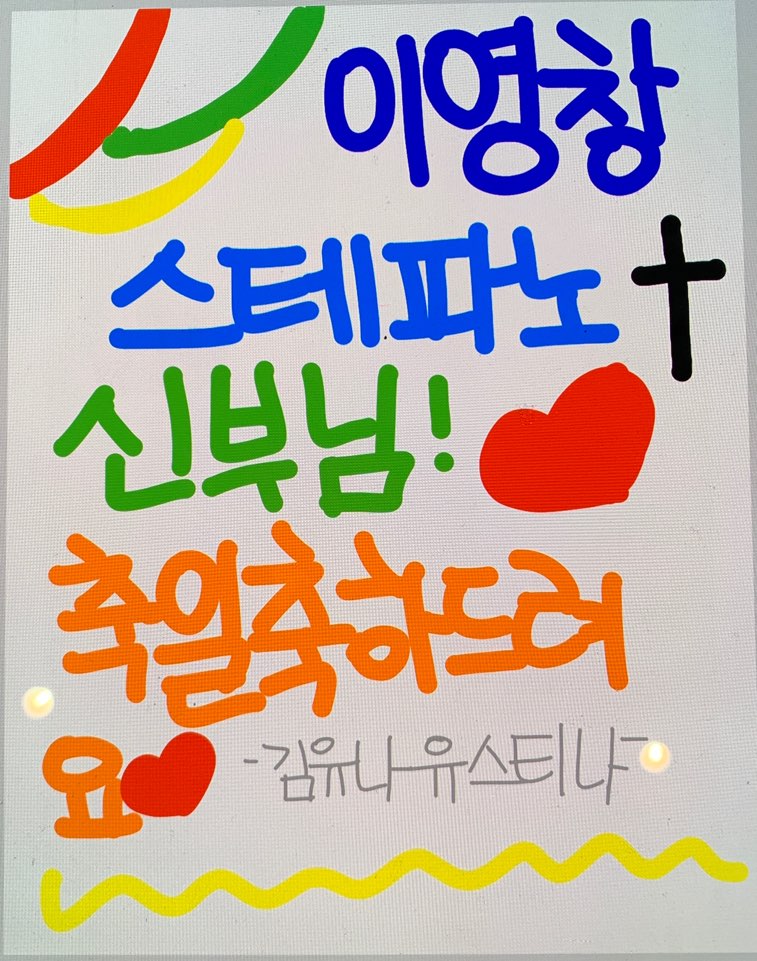 이영창
스테파노
신부님!
축일축하드려
요
-김유나유스티나-